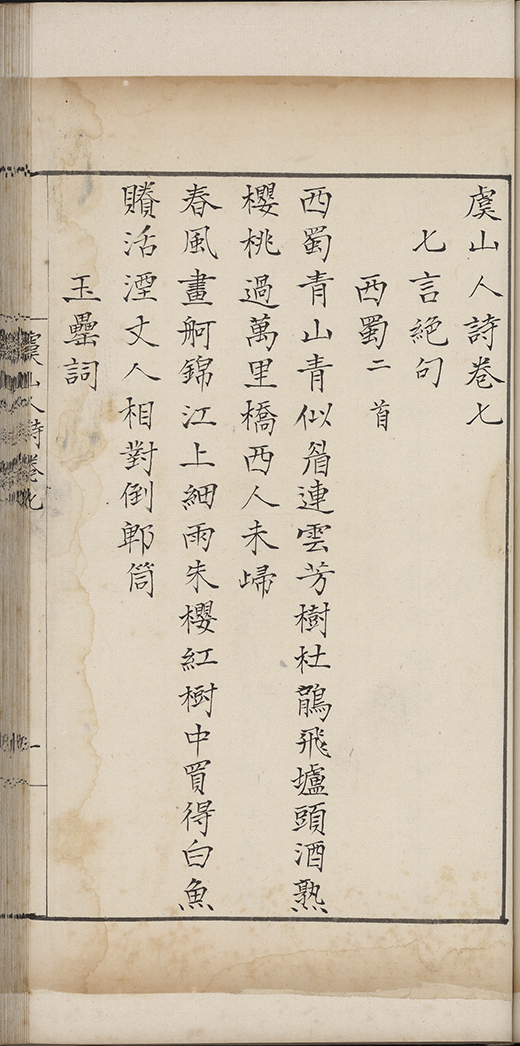 虞山人詩卷七
七言絕句
西蜀二首
西蜀青山青似眉連雲芳樹杜鵑飛壚頭酒熟
櫻桃過萬里橋西人未歸
春風畫舸錦江上細雨朱櫻紅樹中買得白魚
賸活湮丈人相對倒郫筒
玉壘詞
虞山人詩卷七
一